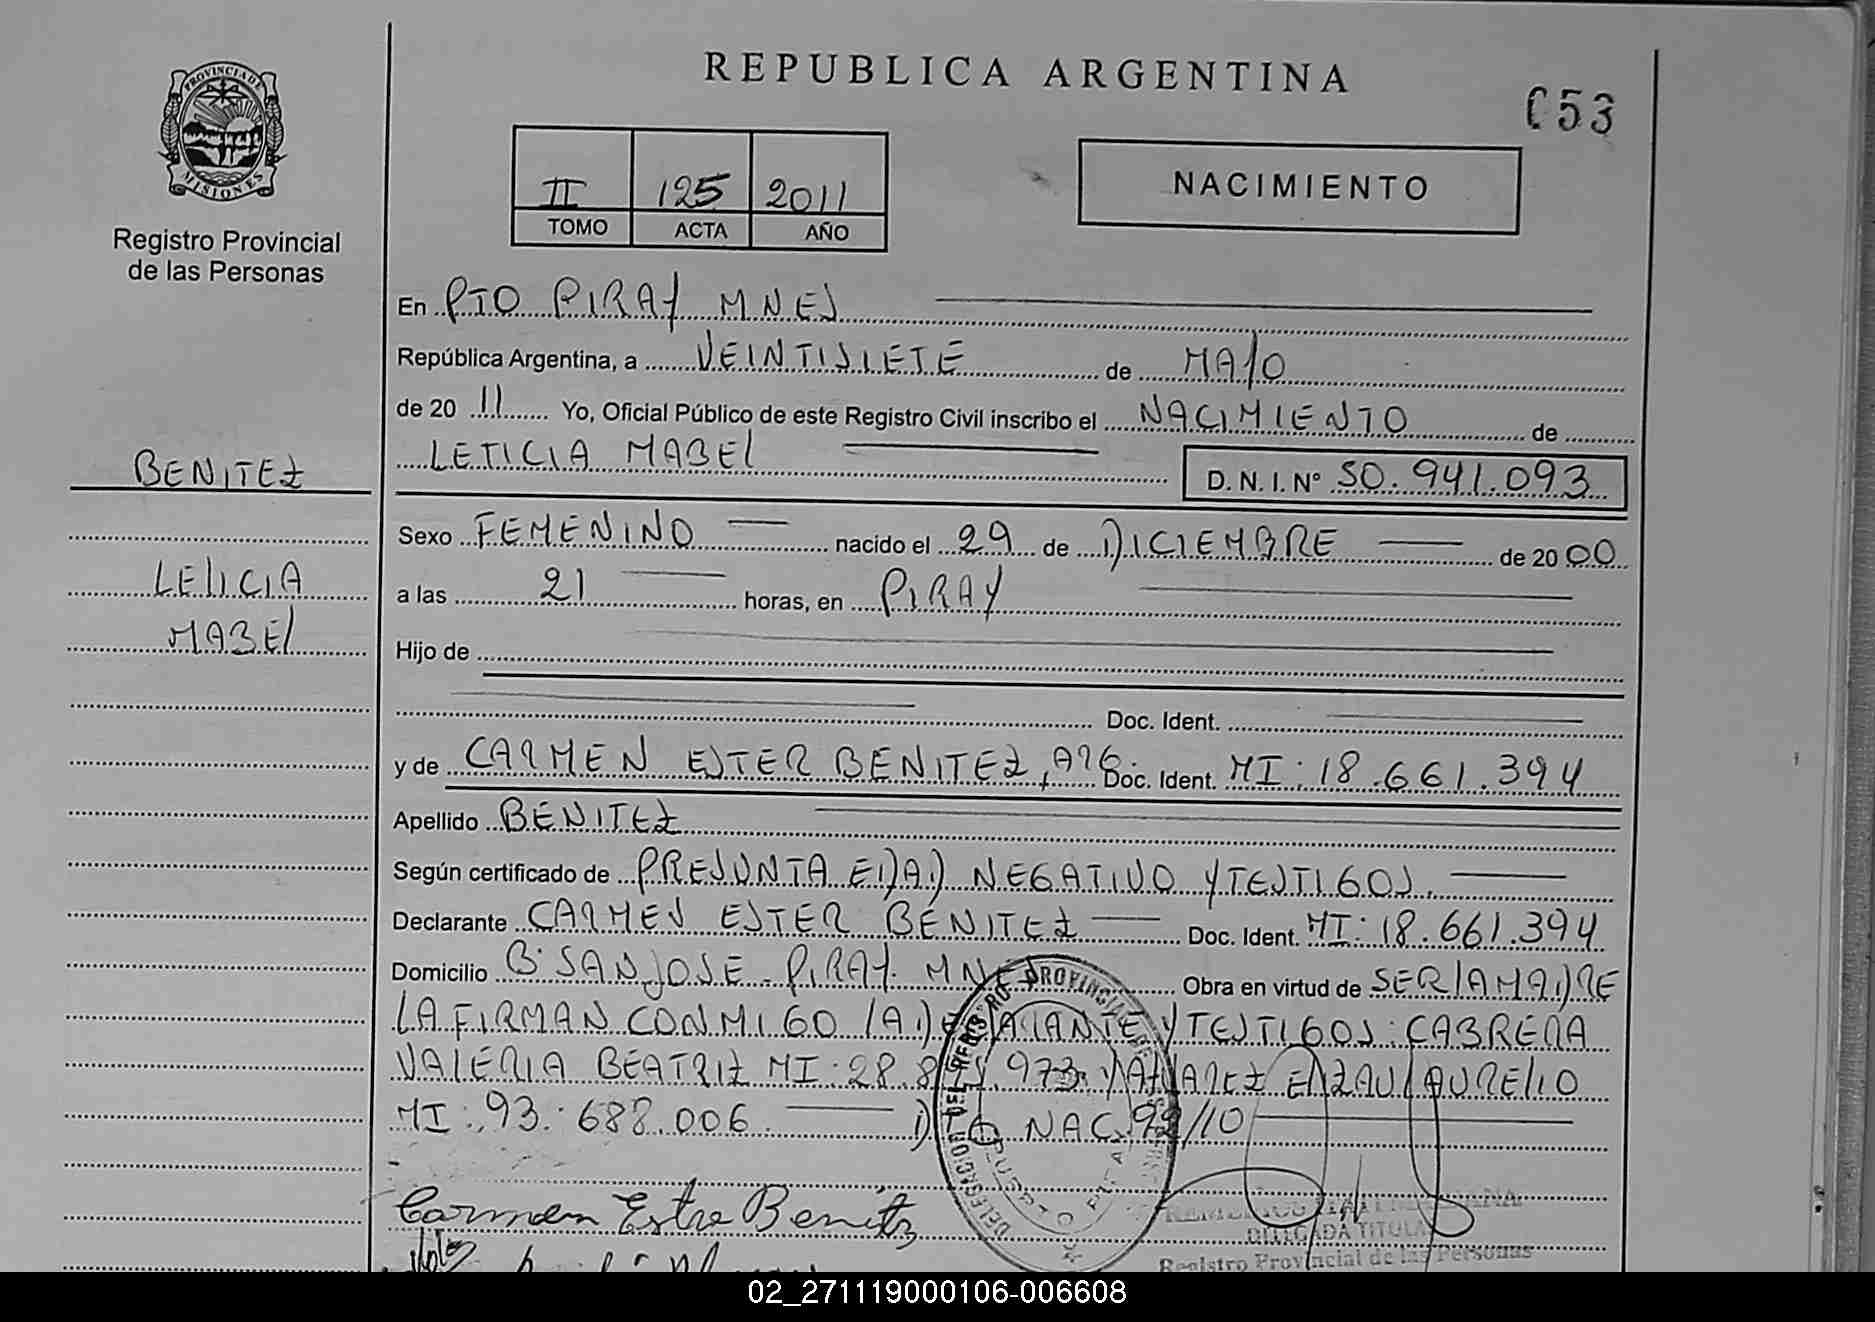 REPUBLICA ARGENTINA
053
PROVINCIA DE
MISIONES
Registro Provincial
de las Personas
II 125 2011
TOMO ACTA AÑO
NACIMIENTO
En PTO PIRAY MNES
República Argentina, a VEINTISIETE de MAYO
de 20 11 Yo, Oficial Público de este Registro Civil inscribo el NACIMIENTO de
LETICIA MABEL
D. N. I. Nº 50.941.093
BENITEZ
LETICIA
MABEL
Sexo FEMENINO nacido el 29 de DICIEMBRE de 20 00
a las 21 horas, en PIRAY
Hijo de
Doc. Ident.
y de CARMEN ESTER BENITEZ, ARG Doc. Ident. MI: 18.661.394
Apellido BENITEZ
Según certificado de PRESUNTA EDAD NEGATIVO Y TESTIGOS.
Declarante CARMEN ESTER BENITEZ Doc. Ident. MI: 18.661.394
Domicilio Bº SAN JOSE - PIRAY MNES Obra en virtud de SER LA MADRE
LA FIRMAN CONMIGO LA DECLARANTE Y TESTIGOS: CABRERA
VALERIA BEATRIZ MI: 28.8 973. Y ALVAREZ AURELIO
MI: 93.688.006 NAC. 92/10
Carmen Estre Benitz
DELEGADA TITULAR
Registro Provincial de las Personas
02_271119000106-006608